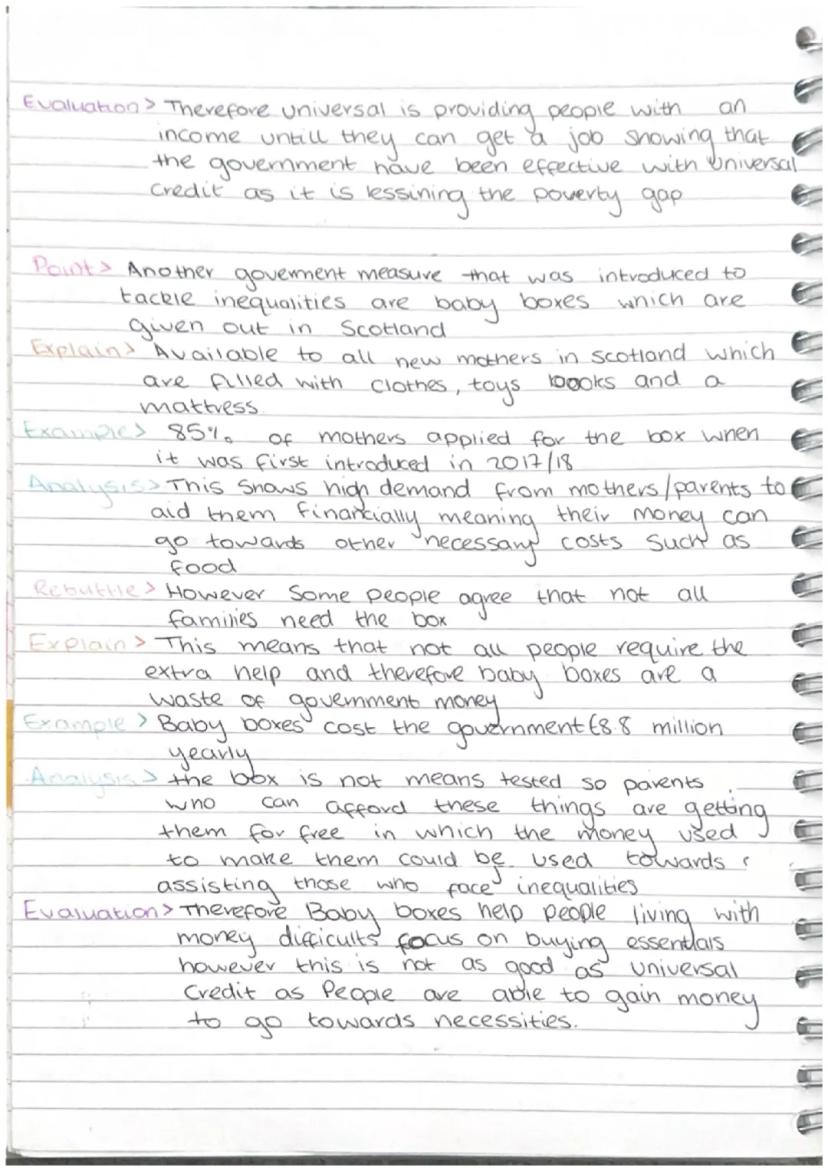 Evaluation > Therefore universal is providing people with an
income untill they can get a job showing that
the government have been effective with universal
credit as it is lessining the poverty gap
Point > Another goverment measure that was introduced to
tackle inequalities are baby boxes which are
given out in Scotland
Explain > Available to all new mothers in Scotland which
are filled with clothes, toys books and a
mattress.
Example > 85% of mothers applied for the box when
it was first introduced in 2017/18
Analysis > This shows high demand from mothers/parents to
aid them financially meaning their money can
go towards other necessary costs such as
food
Rebuttle > However some people agree that not all
families need the box
Explain > This means that not all people require the
extra help and therefore baby boxes are a
waste of government money
Example > Baby boxes cost the government £8.8 million
yearly
Analysis > the box is not means tested so parents
who can afford these things are getting
them for free in which the money used
to make them could be used towards
assisting those who face inequalities
Evaluation > Therefore Baby boxes help people living with
money difficults focus on buying essentials
however this is not as good as universal
credit as People are able to gain money
to go towards necessities.